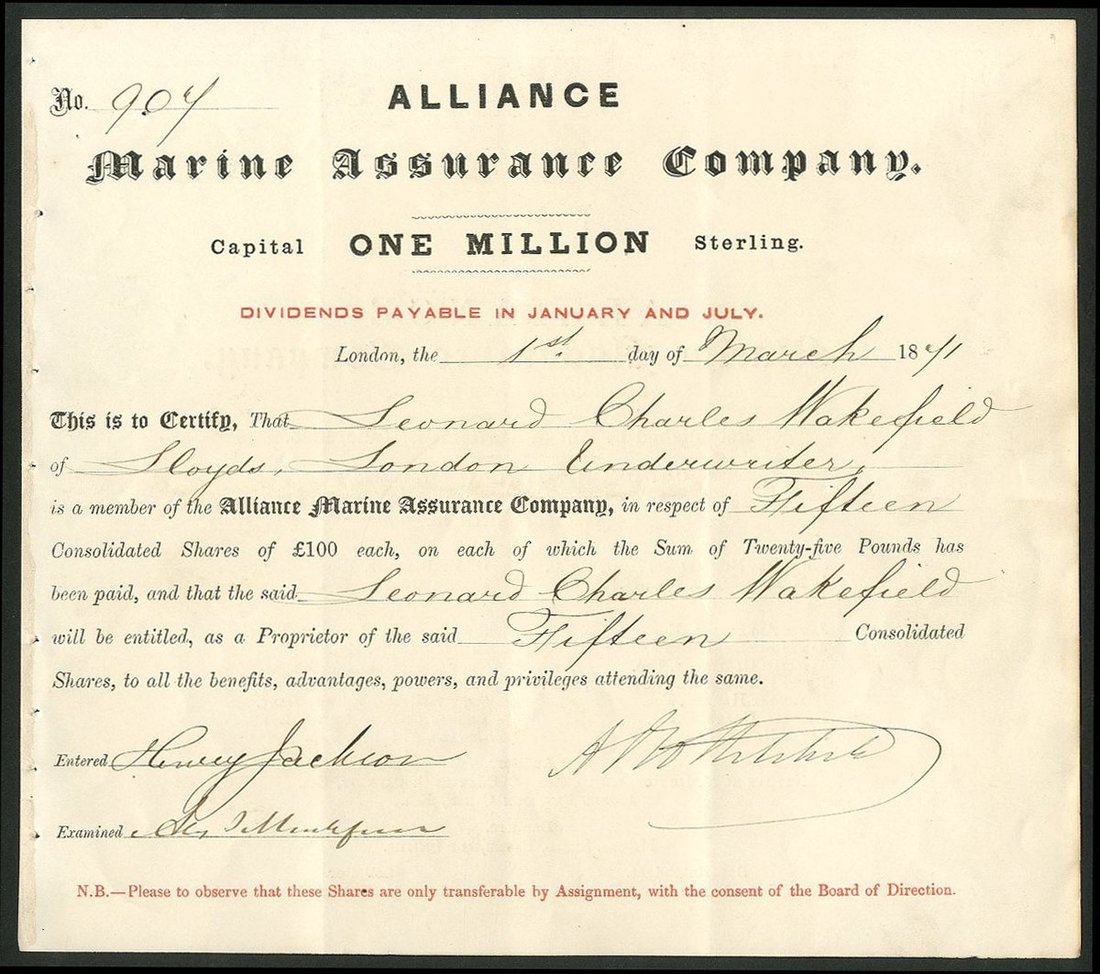 No. 907
ALLIANCE
Marine Assurance Company.
Capital ONE MILLION Sterling.
DIVIDENDS PAYABLE IN JANUARY AND JULY.
London, the 1st. day of March 1871
This is to Certify, That Leonard Charles Wakefield
of Lloyds, London Underwriter,
is a member of the Alliance Marine Assurance Company, in respect of Fifteen
Consolidated Shares of £100 each, on each of which the Sum of Twenty-five Pounds has
been paid, and that the said Leonard Charles Wakefield
will be entitled, as a Proprietor of the said Fifteen Consolidated
Shares, to all the benefits, advantages, powers, and privileges attending the same.
Entered Henry Jackson
Examined
N.B.—Please to observe that these Shares are only transferable by Assignment, with the consent of the Board of Direction.